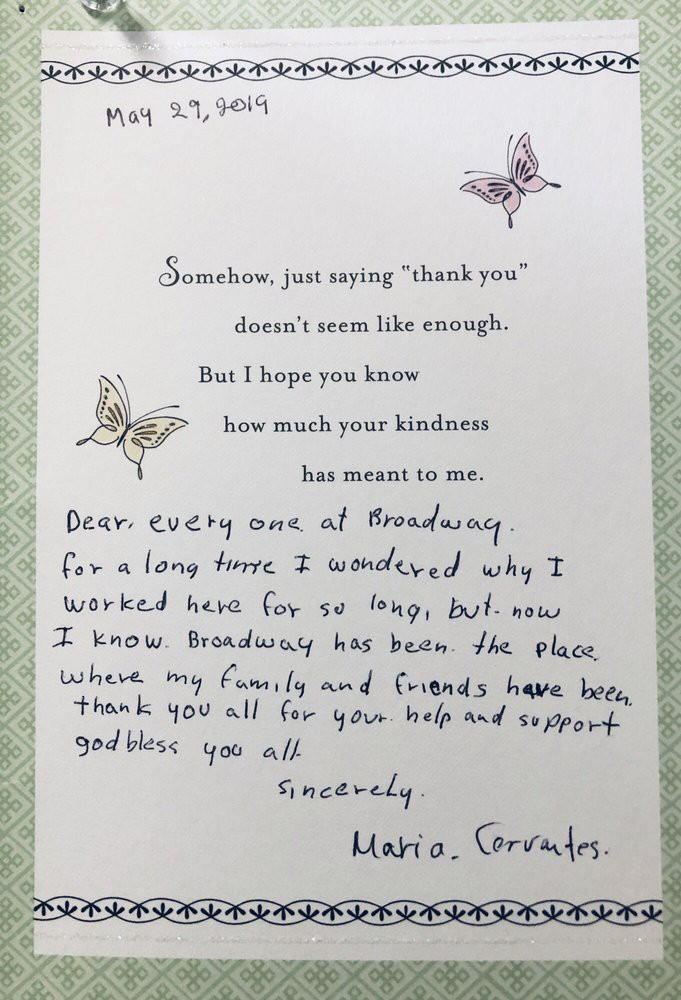 May 29, 2019
Somehow, just saying "thank you"
doesn't seem like enough.
But I hope you know
how much your kindness
has meant to me.
Dear, every one. at Broadway.
for a long time I wondered why I
worked here for so long, but. now
I know. Broadway has been. the place.
where my family and friends have been.
thank you all for your. help and support
god bless you all.
sincerely.
Maria. Cervantes.